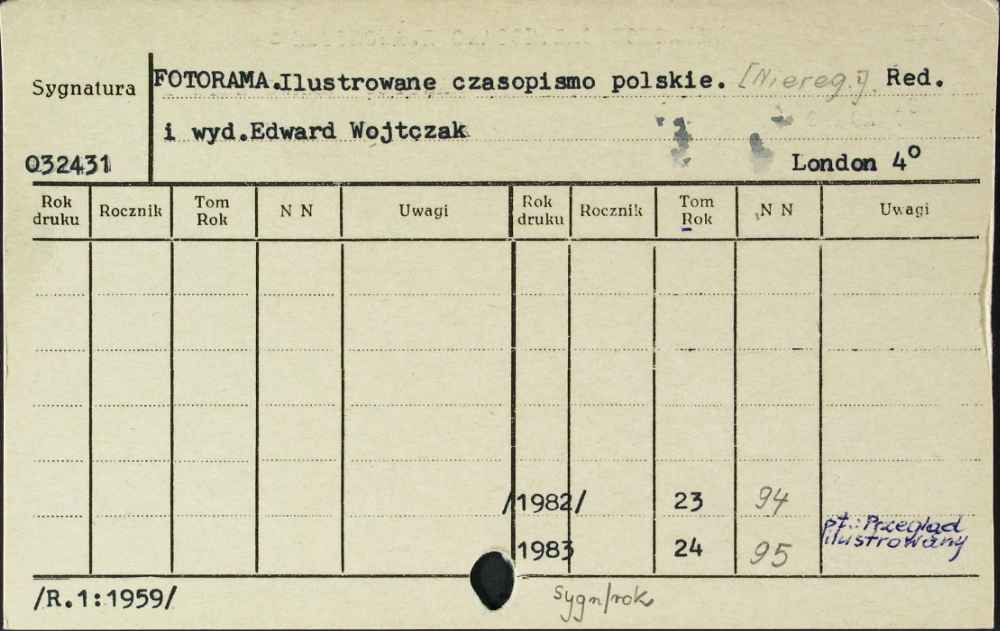 FOTORAMA.Ilustrowane czasopismo polskie. [Niereg.]. Red.
Sygnatura
i wyd.Edward Wojtczak
032431
London 4°
Rok druku Rocznik Tom Rok N N Uwagi Rok druku Rocznik Tom Rok N N Uwagi
/1982/ 23 94
pt.: Przegląd
1983 24 95 ilustrowany
/R.1:1959/
sygn/rok